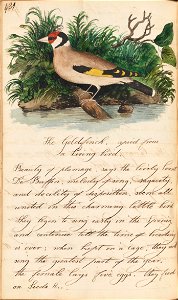 The Goldfinch, copied from
a living bird.
Beauty of plumage, says the lively Count
De Buffon, melody of song, sagacity
and docility of disposition, seem all
united in this charming little bird.
They begin to sing early in the Spring,
and continue till the time of breeding
is over; when kept in a cage, they will
sing the greatest part of the year.
the female lays five eggs. they feed
on Seeds &c.